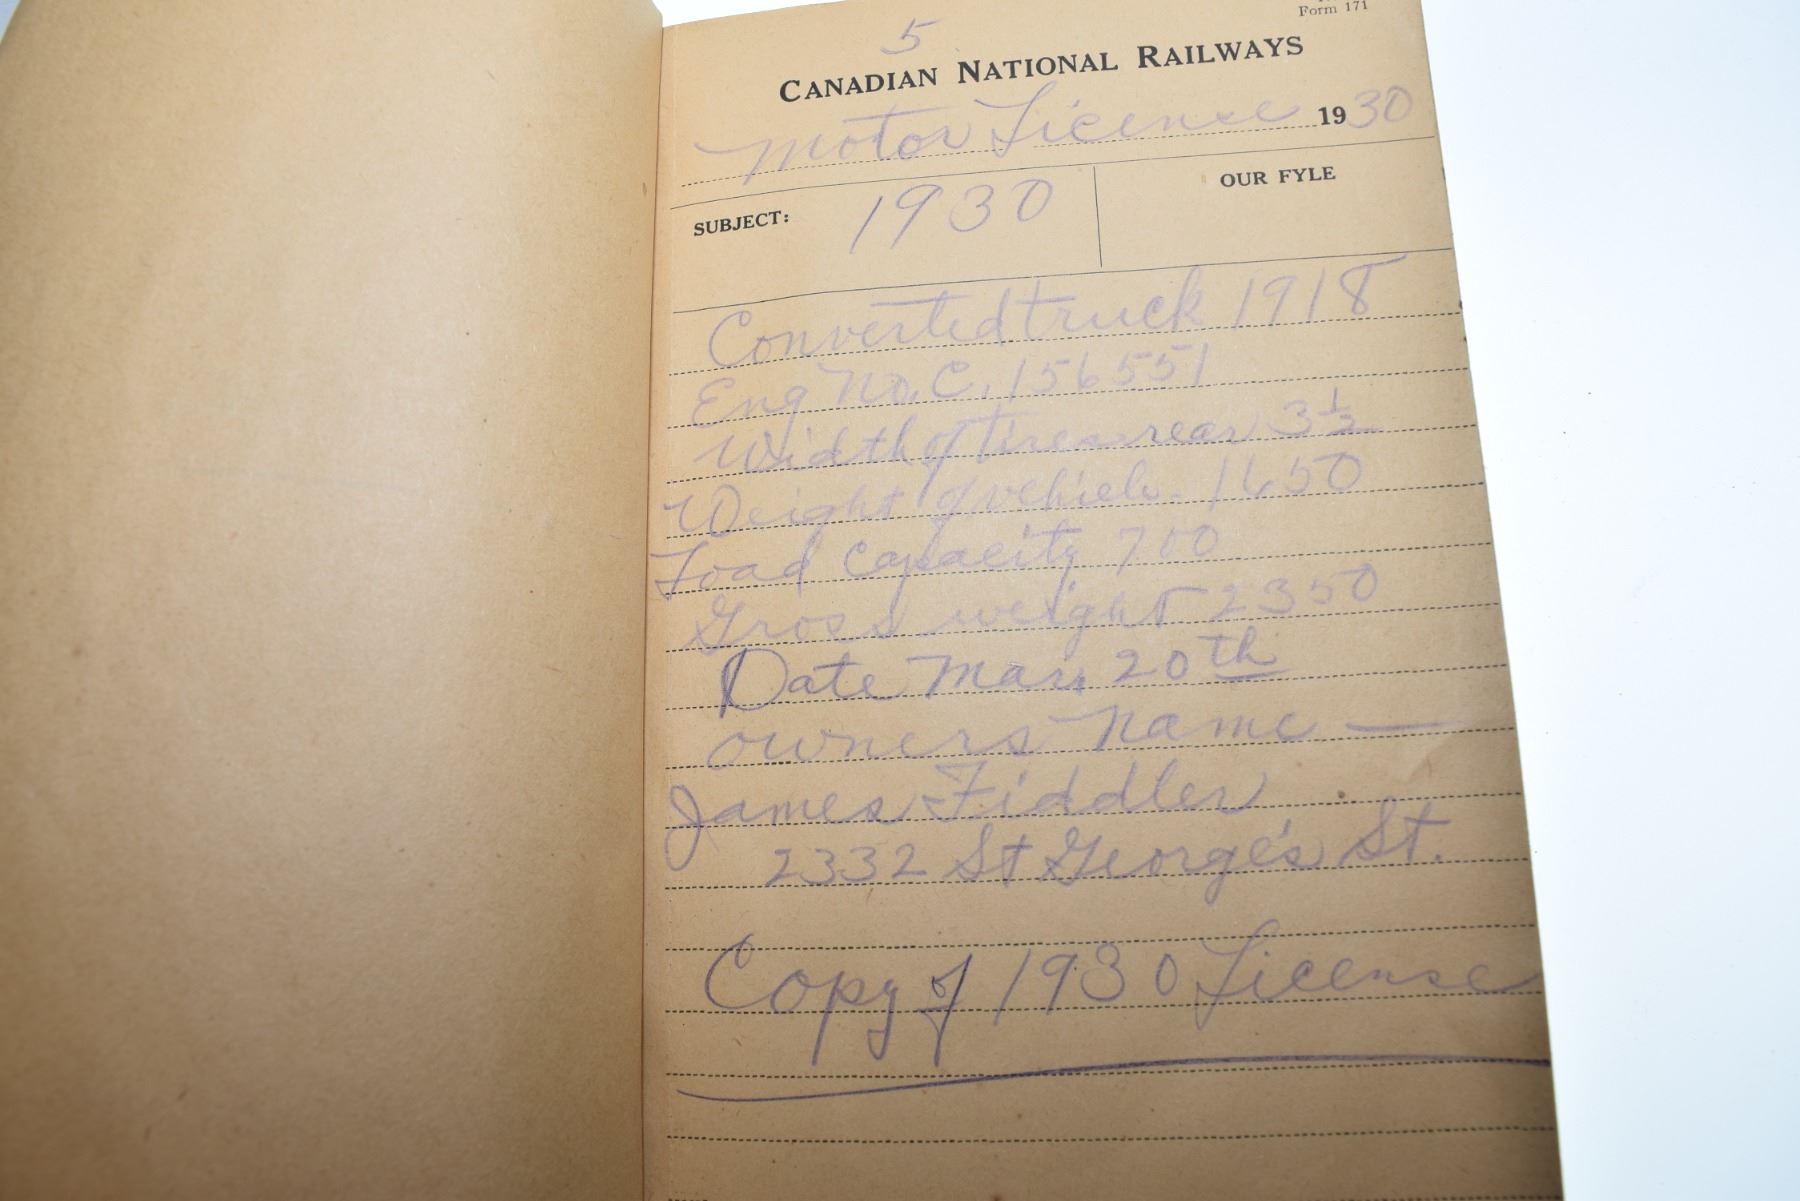 Form 171
5
CANADIAN NATIONAL RAILWAYS
Motor License 1930
SUBJECT: 1930 OUR FYLE
Converted truck 1918
Eng No. C. 156551
Width of tires rear 3 1/2
Weight of vehicle - 1650
Load Capacity 700
Gross weight 2350
Date Mar. 20th
owners name —
James Fiddler
2332 St George's St.
Copy of 1930 License